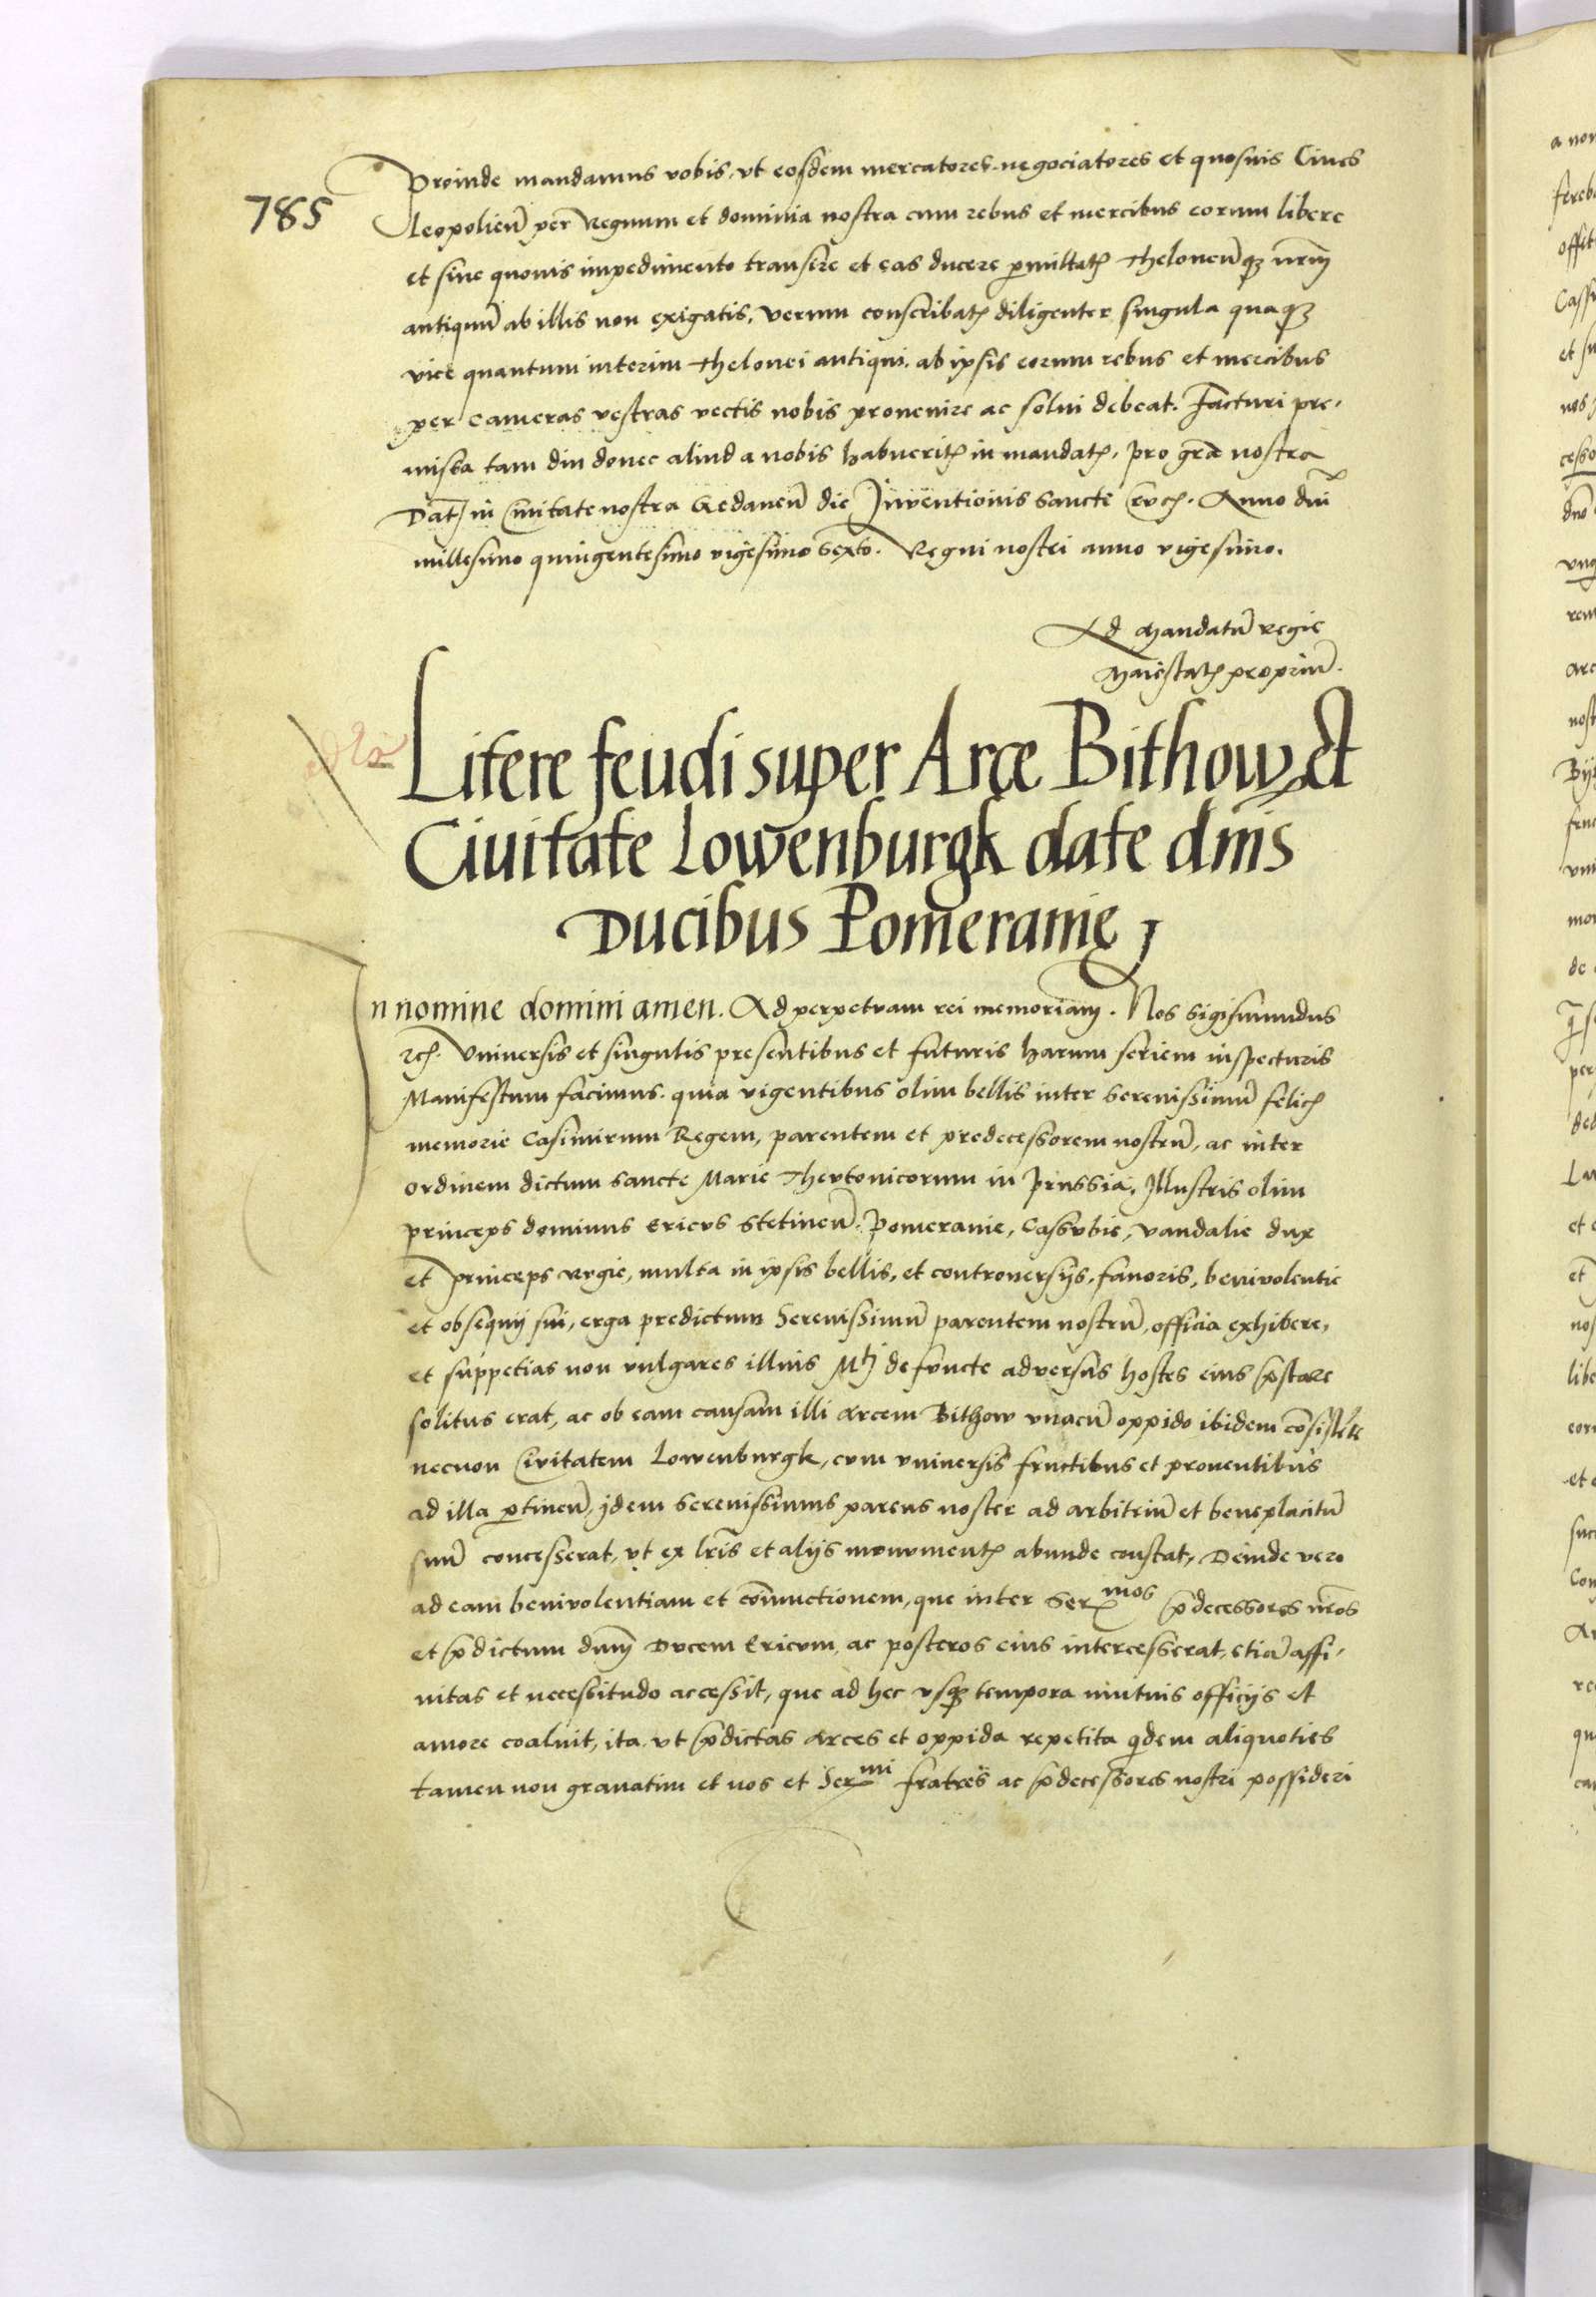 785
Proinde mandamus vobis, vt eosdem mercatores negociatores et quosuis Ciues
Leopolien̄ per Regnum et dominia nostra cum rebus et mercibus eorum libere
et sine quouis impedimento transire et eas ducere ꝑmittatꝭ Theloneūqꝫ nr̄m
antiquū ab illis non exigatis, verum conscribatꝭ diligenter singula quaqꝫ
vice quantum interim Thelonei antiqui ab ipsis eorum rebus et mercibus
per cameras vestras vectis nobis prouenire ac solui debeat. Facturi pre-
missa tam diu donec aliud a nobis habueritꝭ in mandatꝭ, pro gr̄a nostra
Dat̄ in Ciuitate nostra Gedanen̄ die Inventionis Sancte Crucꝭ. Anno dn̄i
millesimo quingentesimo vigesimo Sexto. Regni nostri anno vigesimo.
Ad Mandatū Regie
Maiestatꝭ propriū.
Litere feudi super Arce Bithow et
Ciuitate Lowenburgk date dn̄is
Ducibus Pomeranię
In nomine domini amen. Ad perpetuam rei memoriam. Nos Sigismundus
ꝛcꝭ. Vniuersis et singulis presentibus et futuris harum seriem inspecturis
Manifestum facimus. quia vigentibus olim bellis inter Serenissimū felicꝭ
memorie Casimirum Regem, parentem et predecessorem nostrū, ac inter
ordinem dictum Sancte Marie Thevtonicorum in Prussia, Illustris olim
princeps dominus Ericvs Stetinen̄. Pomeranie, Cassvbie, vandalie dux
et princeps rvgie, multa in ipsis bellis, et controuersijs, fauoris, beniuolentie
et obsequij sui, erga predictum Serenissimū parentem nostrū, officia exhibere,
et suppetias non vulgares illius Mtj defvncte adversus hostes eius p̄stare
solitus erat, ac ob eam causam illi Arcem Bithow vnacū oppido ibidem cōsistēte
necnon Civitatem Lowenburgk, cvm vniuersis fructibus et prouentibus
ad illa ꝑtinen̄, jdem Serenissimus parens noster ad arbitriū et beneplacitū
suū concesserat, vt ex lr̄is et alijs monvmentꝭ abunde constat, Deinde vero
ad eam beniuolentiam et cōiunctionem, que inter Serᵐᵒˢ p̄decessores nr̄os
et p̄dictum dnm̄ Dvcem Ericvm, ac posteros eius intercesserat, etiā affi-
nitas et necessitudo accessit, que ad hec vsqꝫ tempora mutuis officijs et
amore coaluit, ita vt p̄dictas Arces et oppida repetita qͥdem aliquoties
tamen non grauatim et nos et Serᵐⁱ fratres ac p̄decessores nostri possideri